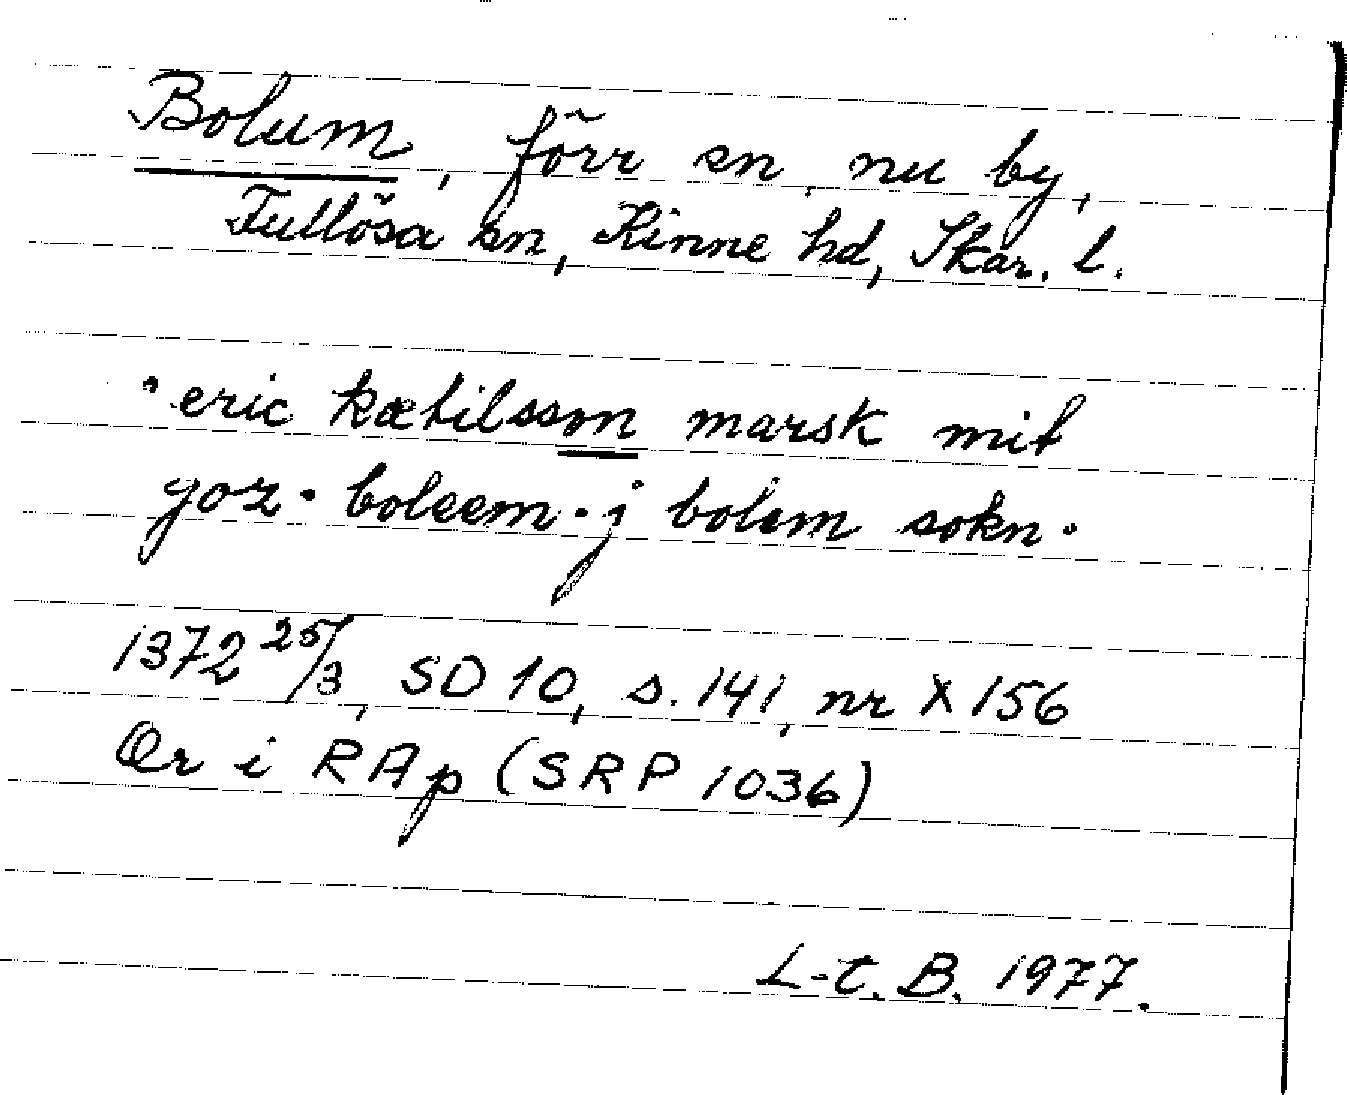 Bolum, förr sn, nu by,
Fullösa sn, Kinne hd, Skar. l.
· eric kætilsson marsk mit
goz · boleem · j bolem sokn ·
1372 25/3, SD 10, s. 141, nr X 156
Or i RAp (SRP 1036)
L-t. B. 1977.